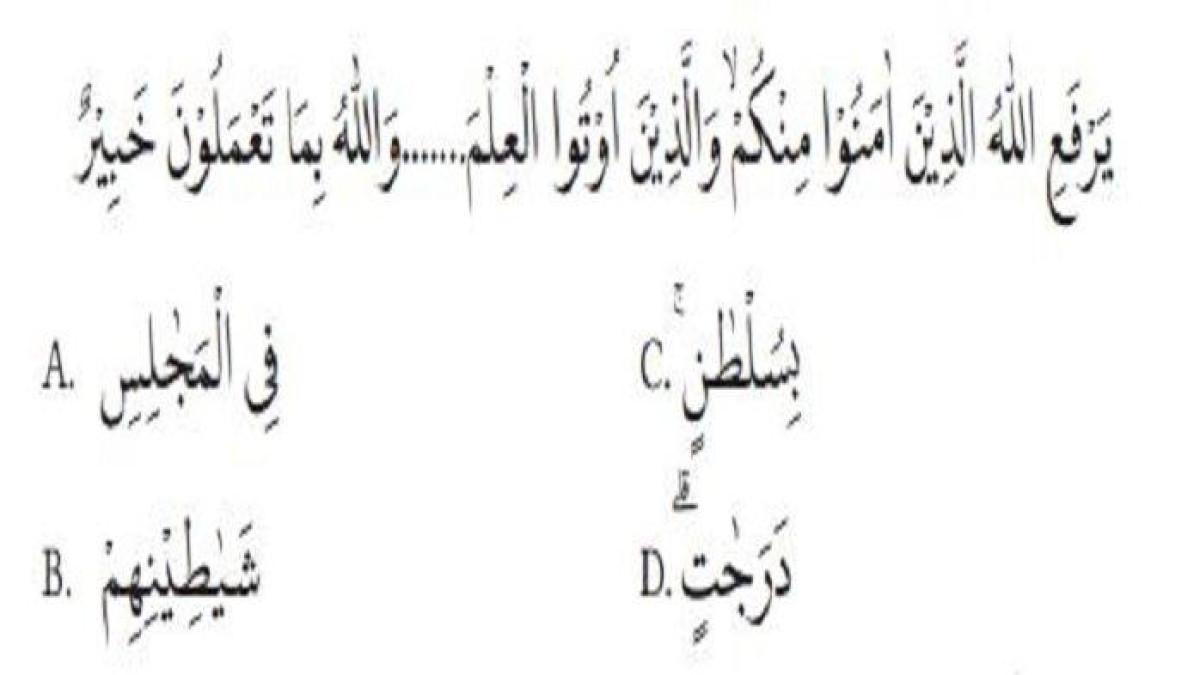 يَرْفَعِ اللّٰهُ الَّذِيْنَ اٰمَنُوْا مِنْكُمْۙ وَالَّذِيْنَ اُوْتُوا الْعِلْمَ.......وَاللّٰهُ بِمَا تَعْمَلُوْنَ خَبِيْرٌ
A. فِى الْمَجٰلِسِ
C. بِسُلْطٰنٍۚ
B. شَيٰطِيْنِهِمْ
D. دَرَجٰتٍۗ